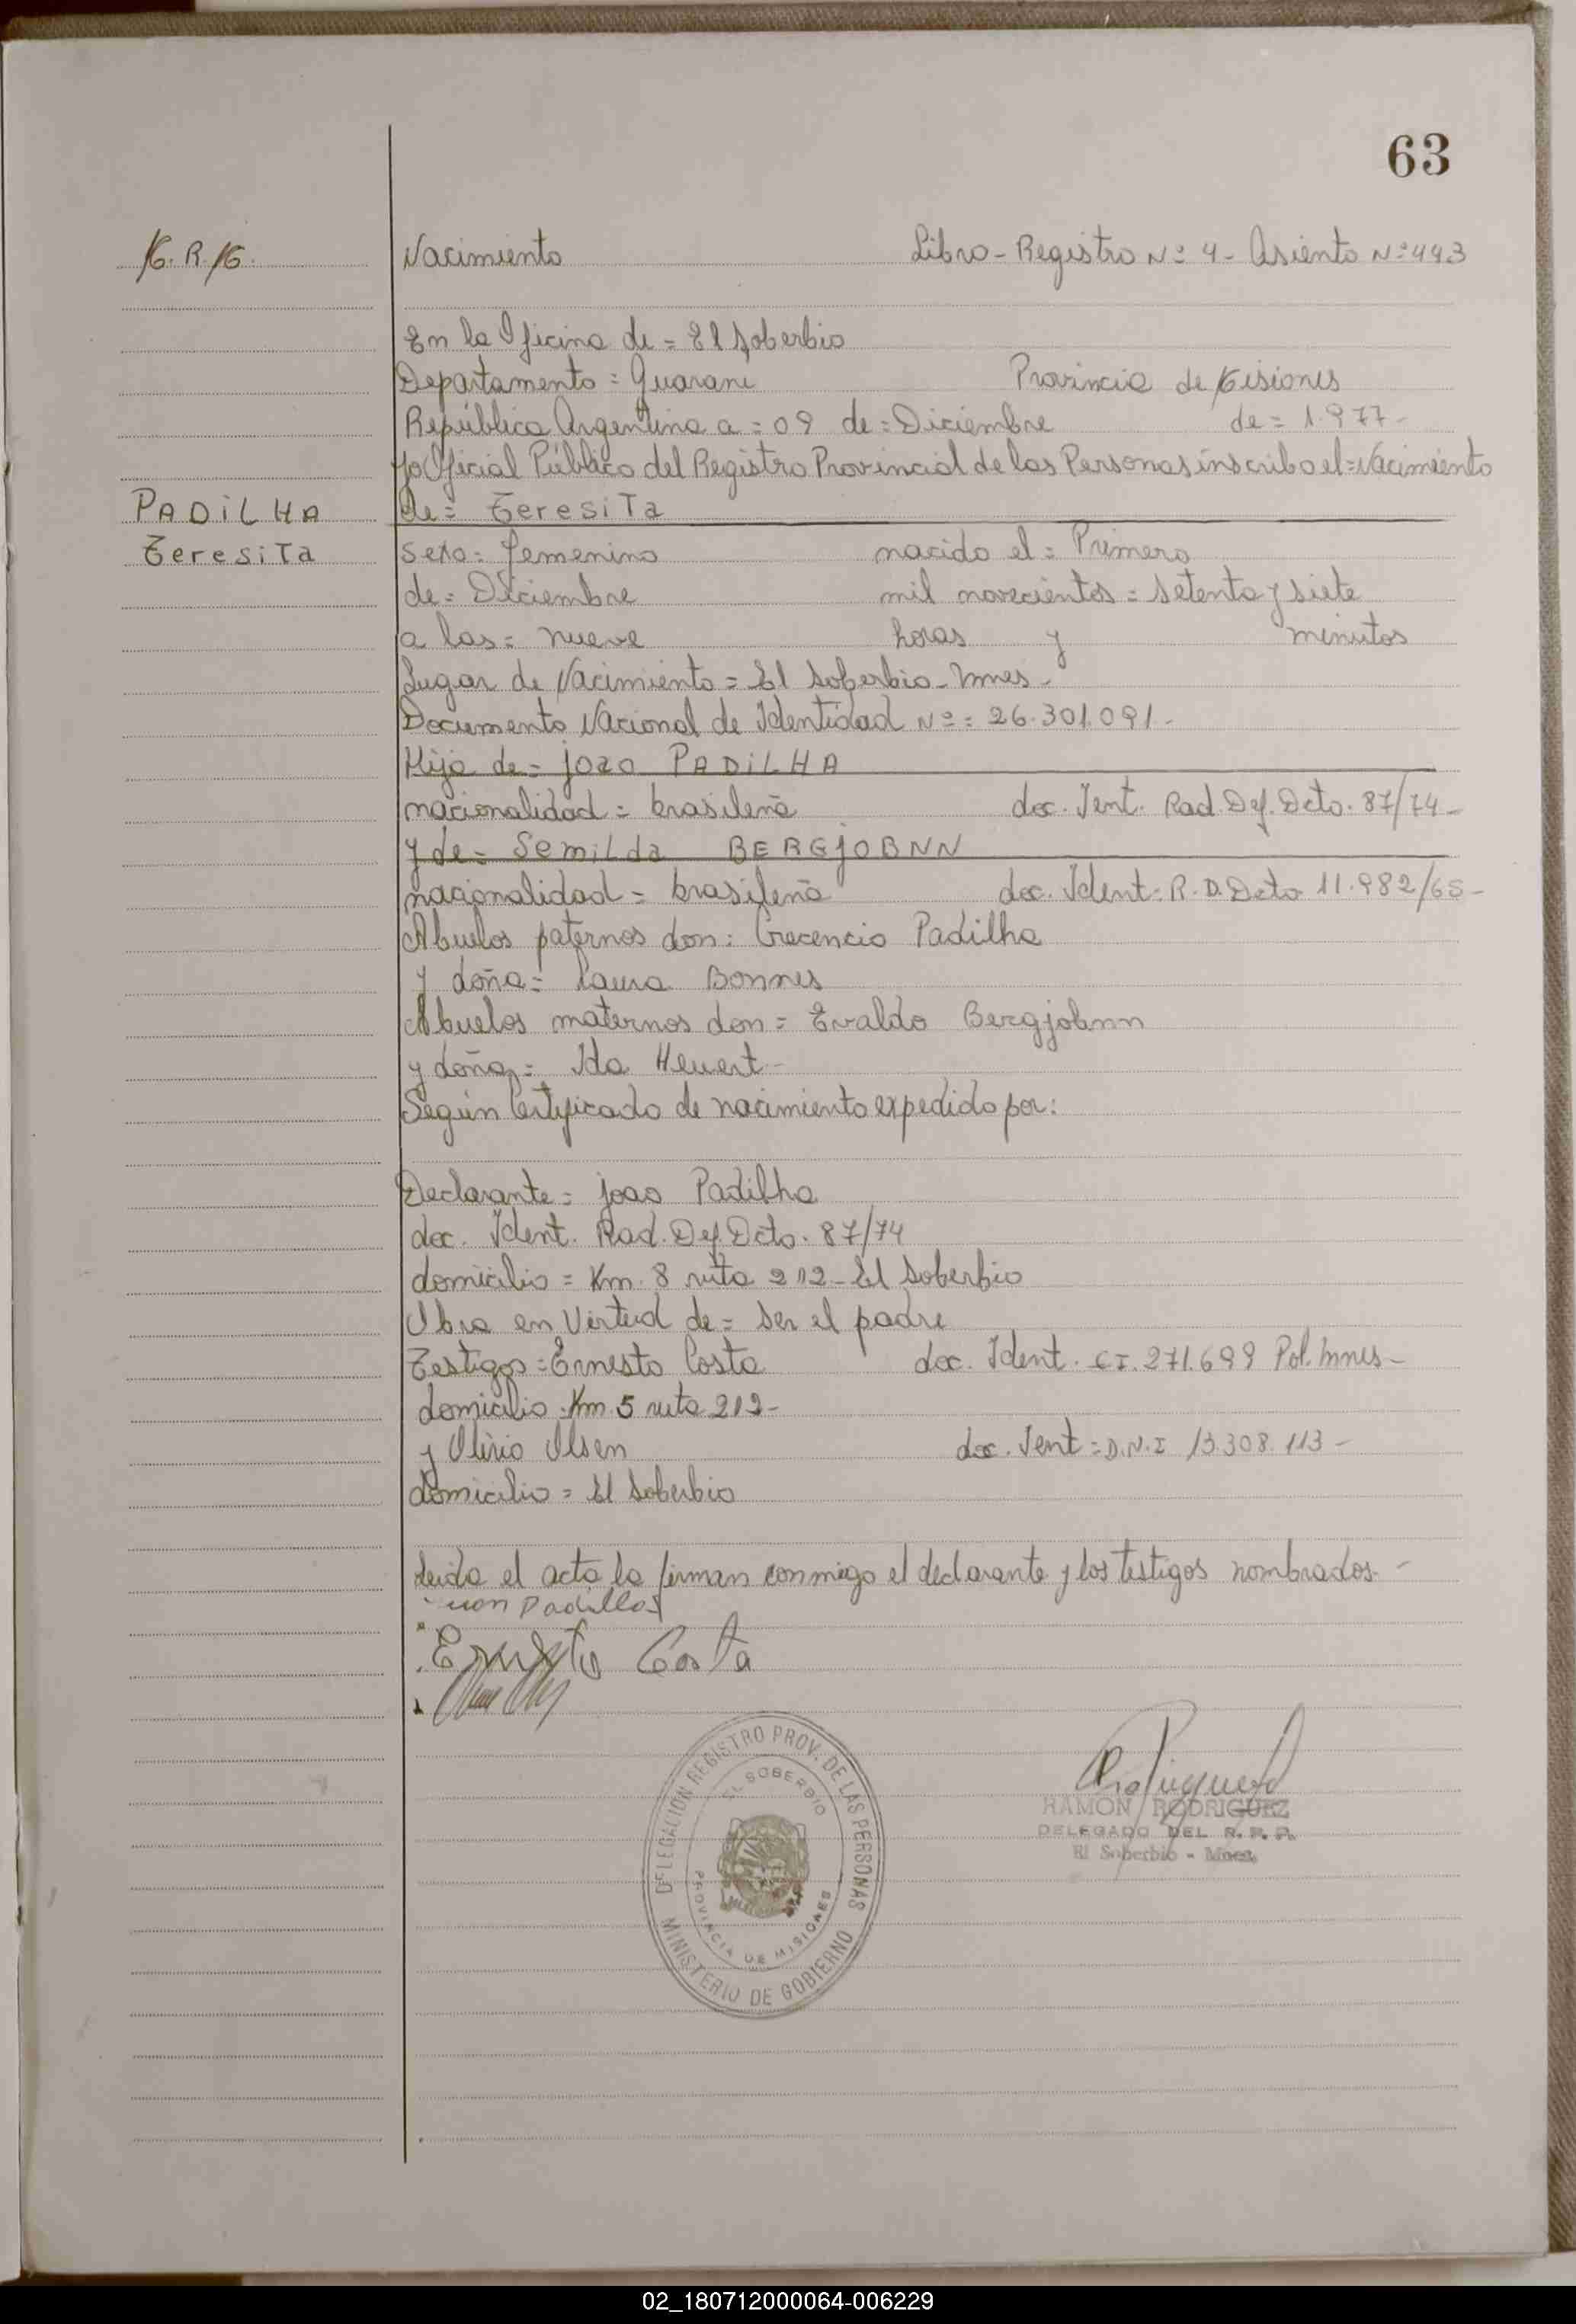 63
Nacimiento Libro - Registro Nº 4 - Asiento Nº 443
En la Oficina de = El Soberbio
Departamento = Guarani Provincia de Misiones
República Argentina a = 09 de = Diciembre de = 1.977-
yo Oficial Público del Registro Provincial de las Personas inscribo el = Nacimiento
PADiLHA de = TeresiTa
TeresiTa sexo = femenino nacido el = Primero
de = Diciembre mil novecientos = setenta y siete
a las = nueve horas y minutos
Lugar de Nacimiento = El Soberbio - Mnes -
Documento Nacional de Identidad Nº = 26.301.091-
Hija de = joao PADiLHA
nacionalidad = brasileña doc. Ient. Rad. Def. Dcto. 87/74-
y de = SemiLda BERGjOBNN
nacionalidad = brasileña doc. Ident: R.D. Dcto 11.982/65-
Abuelos paternos don: Crecencio Padilha
y doña = Laura Bonnes
Abuelos maternos don = Evaldo Bergjobnn
y doña = Ida Heuert-
Según Certificado de nacimiento expedido por:
Declarante = joao Padilha
doc. Ident. Rad. Def. Dcto. 87/74
domicilio = Km. 8 ruta 212 - El Soberbio
Obra en Virtud de = ser el padre
Testigos = Ernesto Costa doc. Ident. C.I. 271.699 Pol. Mnes-
domicilio = Km. 5 ruta 212-
y Olirio Olsen doc. Ient = D.N.I 13.308.113-
domicilio = El Soberbio
Leida el acta la firman conmigo el declarante y los testigos nombrados.-
Ernesto Costa
DELEGACION REGISTRO PROV. DE LAS PERSONAS
EL SOBERBIO
PROVINCIA DE MISIONES
MINISTERIO DE GOBIERNO
RAMON RODRIGUEZ
DELEGADO DEL R. P. P.
El Soberbio - Mnes.
02_180712000064-006229